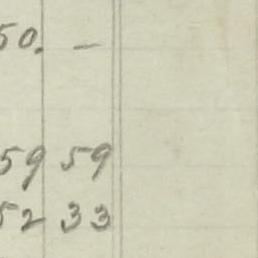 50. —
59 59
52 33